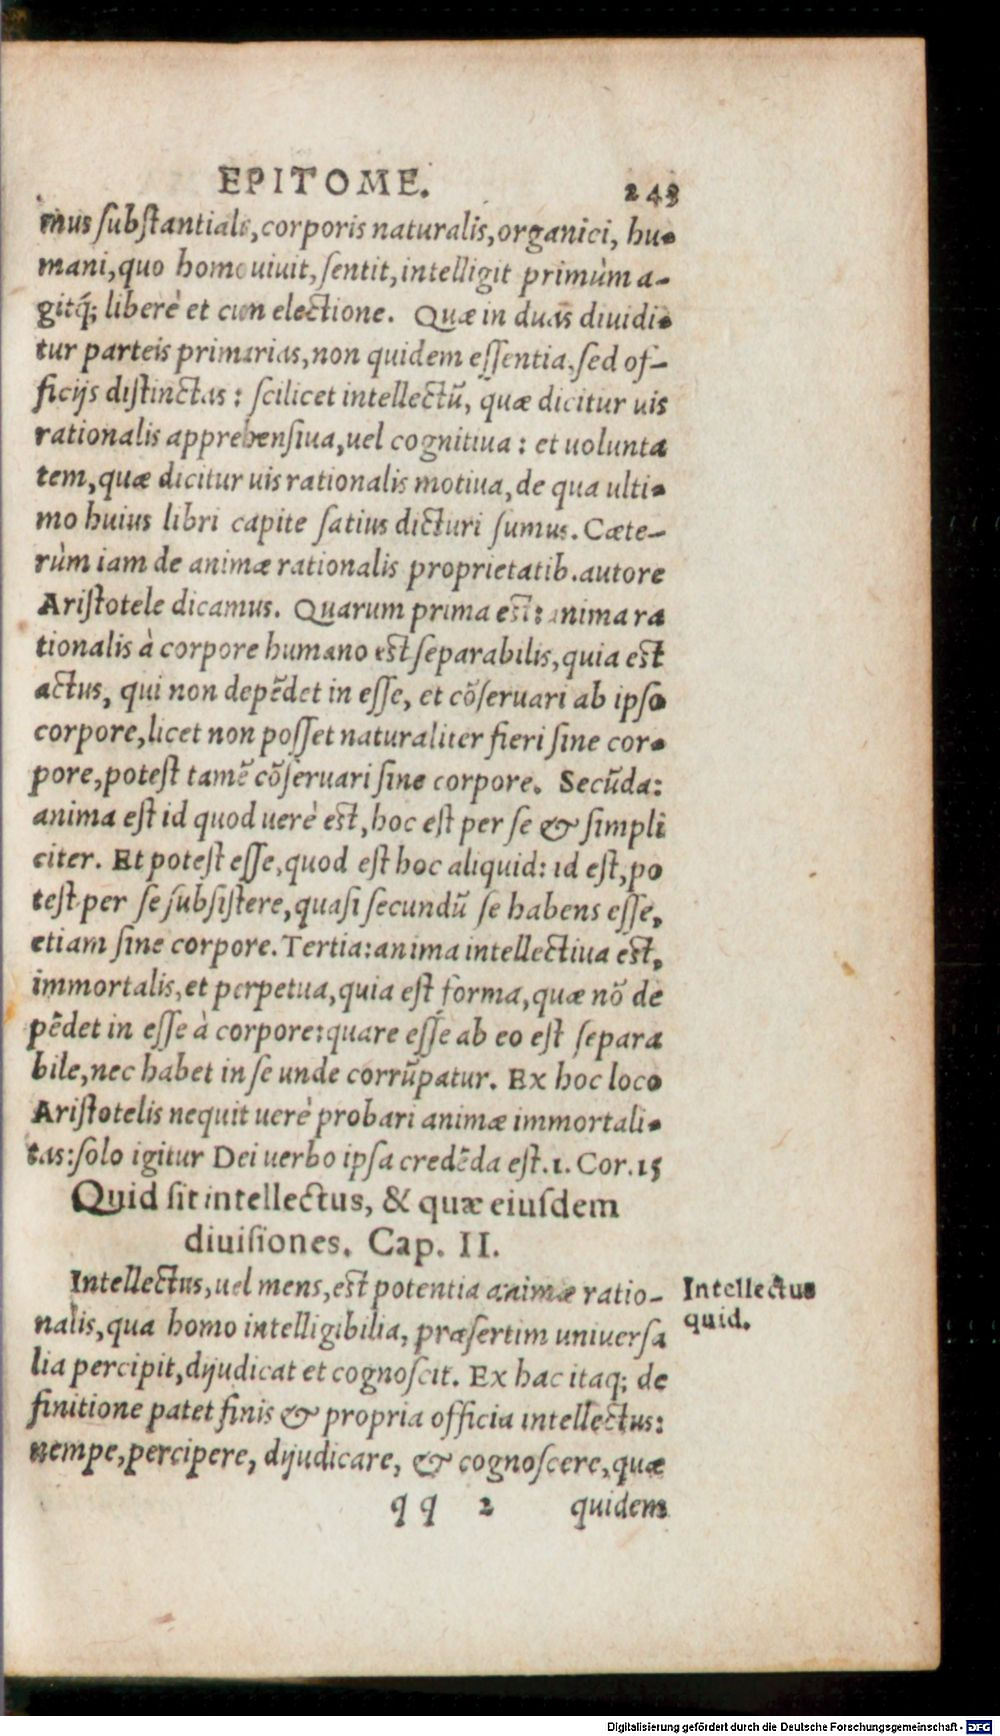 EPITOME. 243
mus substantialis, corporis naturalis, organici, hu-
mani, quo homo uiuit, sentit, intelligit primùm a-
gitq́; liberè et cum electione. Quæ in duas diuidi-
tur parteis primarias, non quidem essentia, sed of-
ficijs distinctas: scilicet intellectũ, quæ dicitur uis
rationalis apprehensiua, uel cognitiua: et uolunta
tem, quæ dicitur uis rationalis motiua, de qua ulti-
mo huius libri capite satius dicturi sumus. Cæte-
rùm iam de animæ rationalis proprietatib. autore
Aristotele dicamus. Quarum prima est: anima ra
tionalis à corpore humano est separabilis, quia est
actus, qui non depẽdet in esse, et cõseruari ab ipso
corpore, licet non posset naturaliter fieri sine cor-
pore, potest tamẽ cõseruari sine corpore. Secũda:
anima est id quod uerè est, hoc est per se & simpli
citer. Et potest esse, quod est hoc aliquid: id est, po
test per se subsistere, quasi secundũ se habens esse,
etiam sine corpore. Tertia: anima intellectiua est,
immortalis, et perpetua, quia est forma, quæ nõ de
pẽdet in esse à corpore: quare esse ab eo est separa
bile, nec habet in se unde corrũpatur. Ex hoc loco
Aristotelis nequit uerè probari animæ immortali-
tas: solo igitur Dei uerbo ipsa credẽda est. 1. Cor. 15
Quid sit intellectus, & quæ eiusdem
diuisiones. Cap. II.
Intellectus, uel mens, est potentia animæ ratio-
nalis, qua homo intelligibilia, præsertim uniuersa
lia percipit, dijudicat et cognoscit. Ex hac itaq; de
finitione patet finis & propria officia intellectus:
nempe, percipere, dijudicare, & cognoscere, quæ
Intellectus
quid.
qq 2 quidem
Digitalisierung gefördert durch die Deutsche Forschungsgemeinschaft - DFG